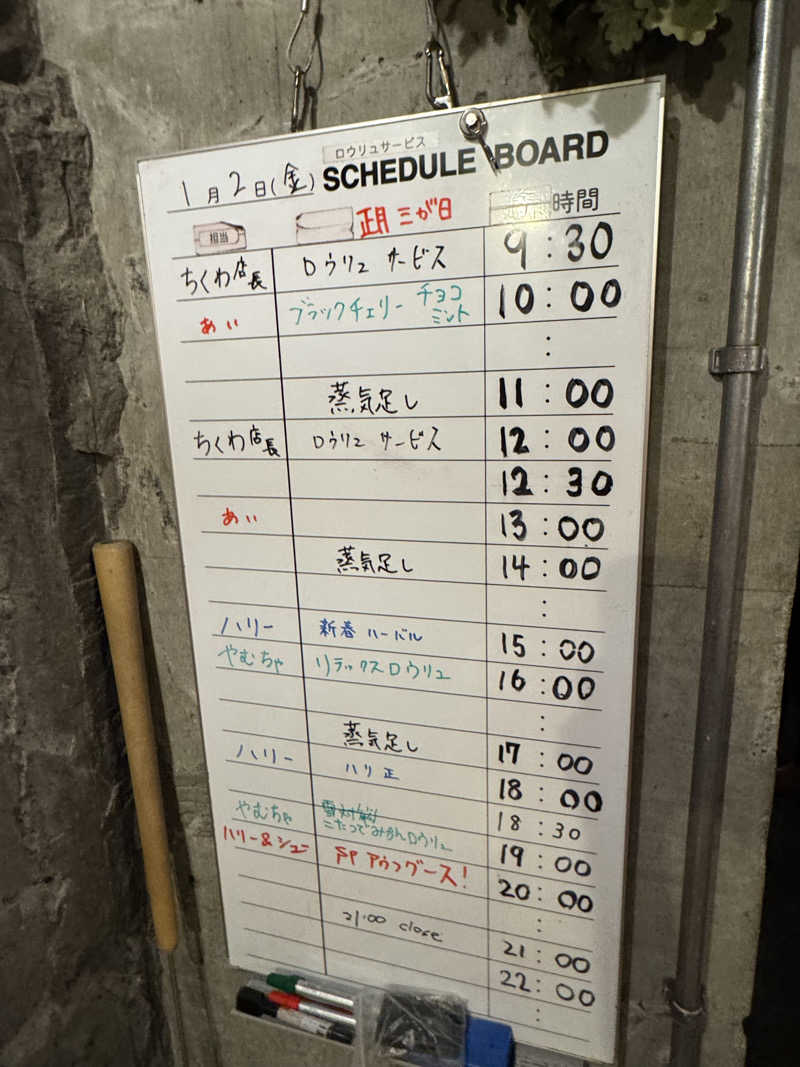 ロウリュサービス
1月2日(金) SCHEDULE BOARD
担当 正月三が日 時間
ちくわ店長 ロウリュ サービス 9:30
あい ブラックチェリー チョコミント 10:00
:
蒸気足し 11:00
ちくわ店長 ロウリュ サービス 12:00
12:30
あい 13:00
蒸気足し 14:00
:
ハリー 新春 ハーバル 15:00
やむちゃ リラックスロウリュ 16:00
:
蒸気足し 17:00
ハリー ハリ正 18:00
18:30
やむちゃ こたつでみかんロウリュ 19:00
ハリー&シュン SPアウフグース! 20:00
:
21:00 close 21:00
22:00
: